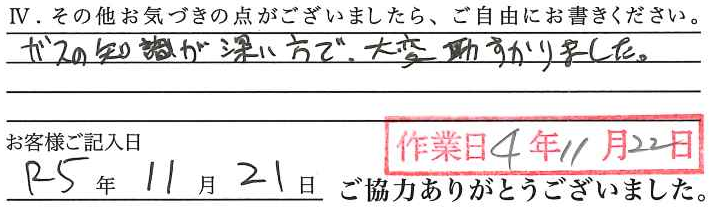 Ⅳ．その他お気づきの点がございましたら、ご自由にお書きください。
ガスの知識が深い方で、大変助すかりました。
お客様ご記入日
作業日4年11月22日
R5年11月21日 ご協力ありがとうございました。